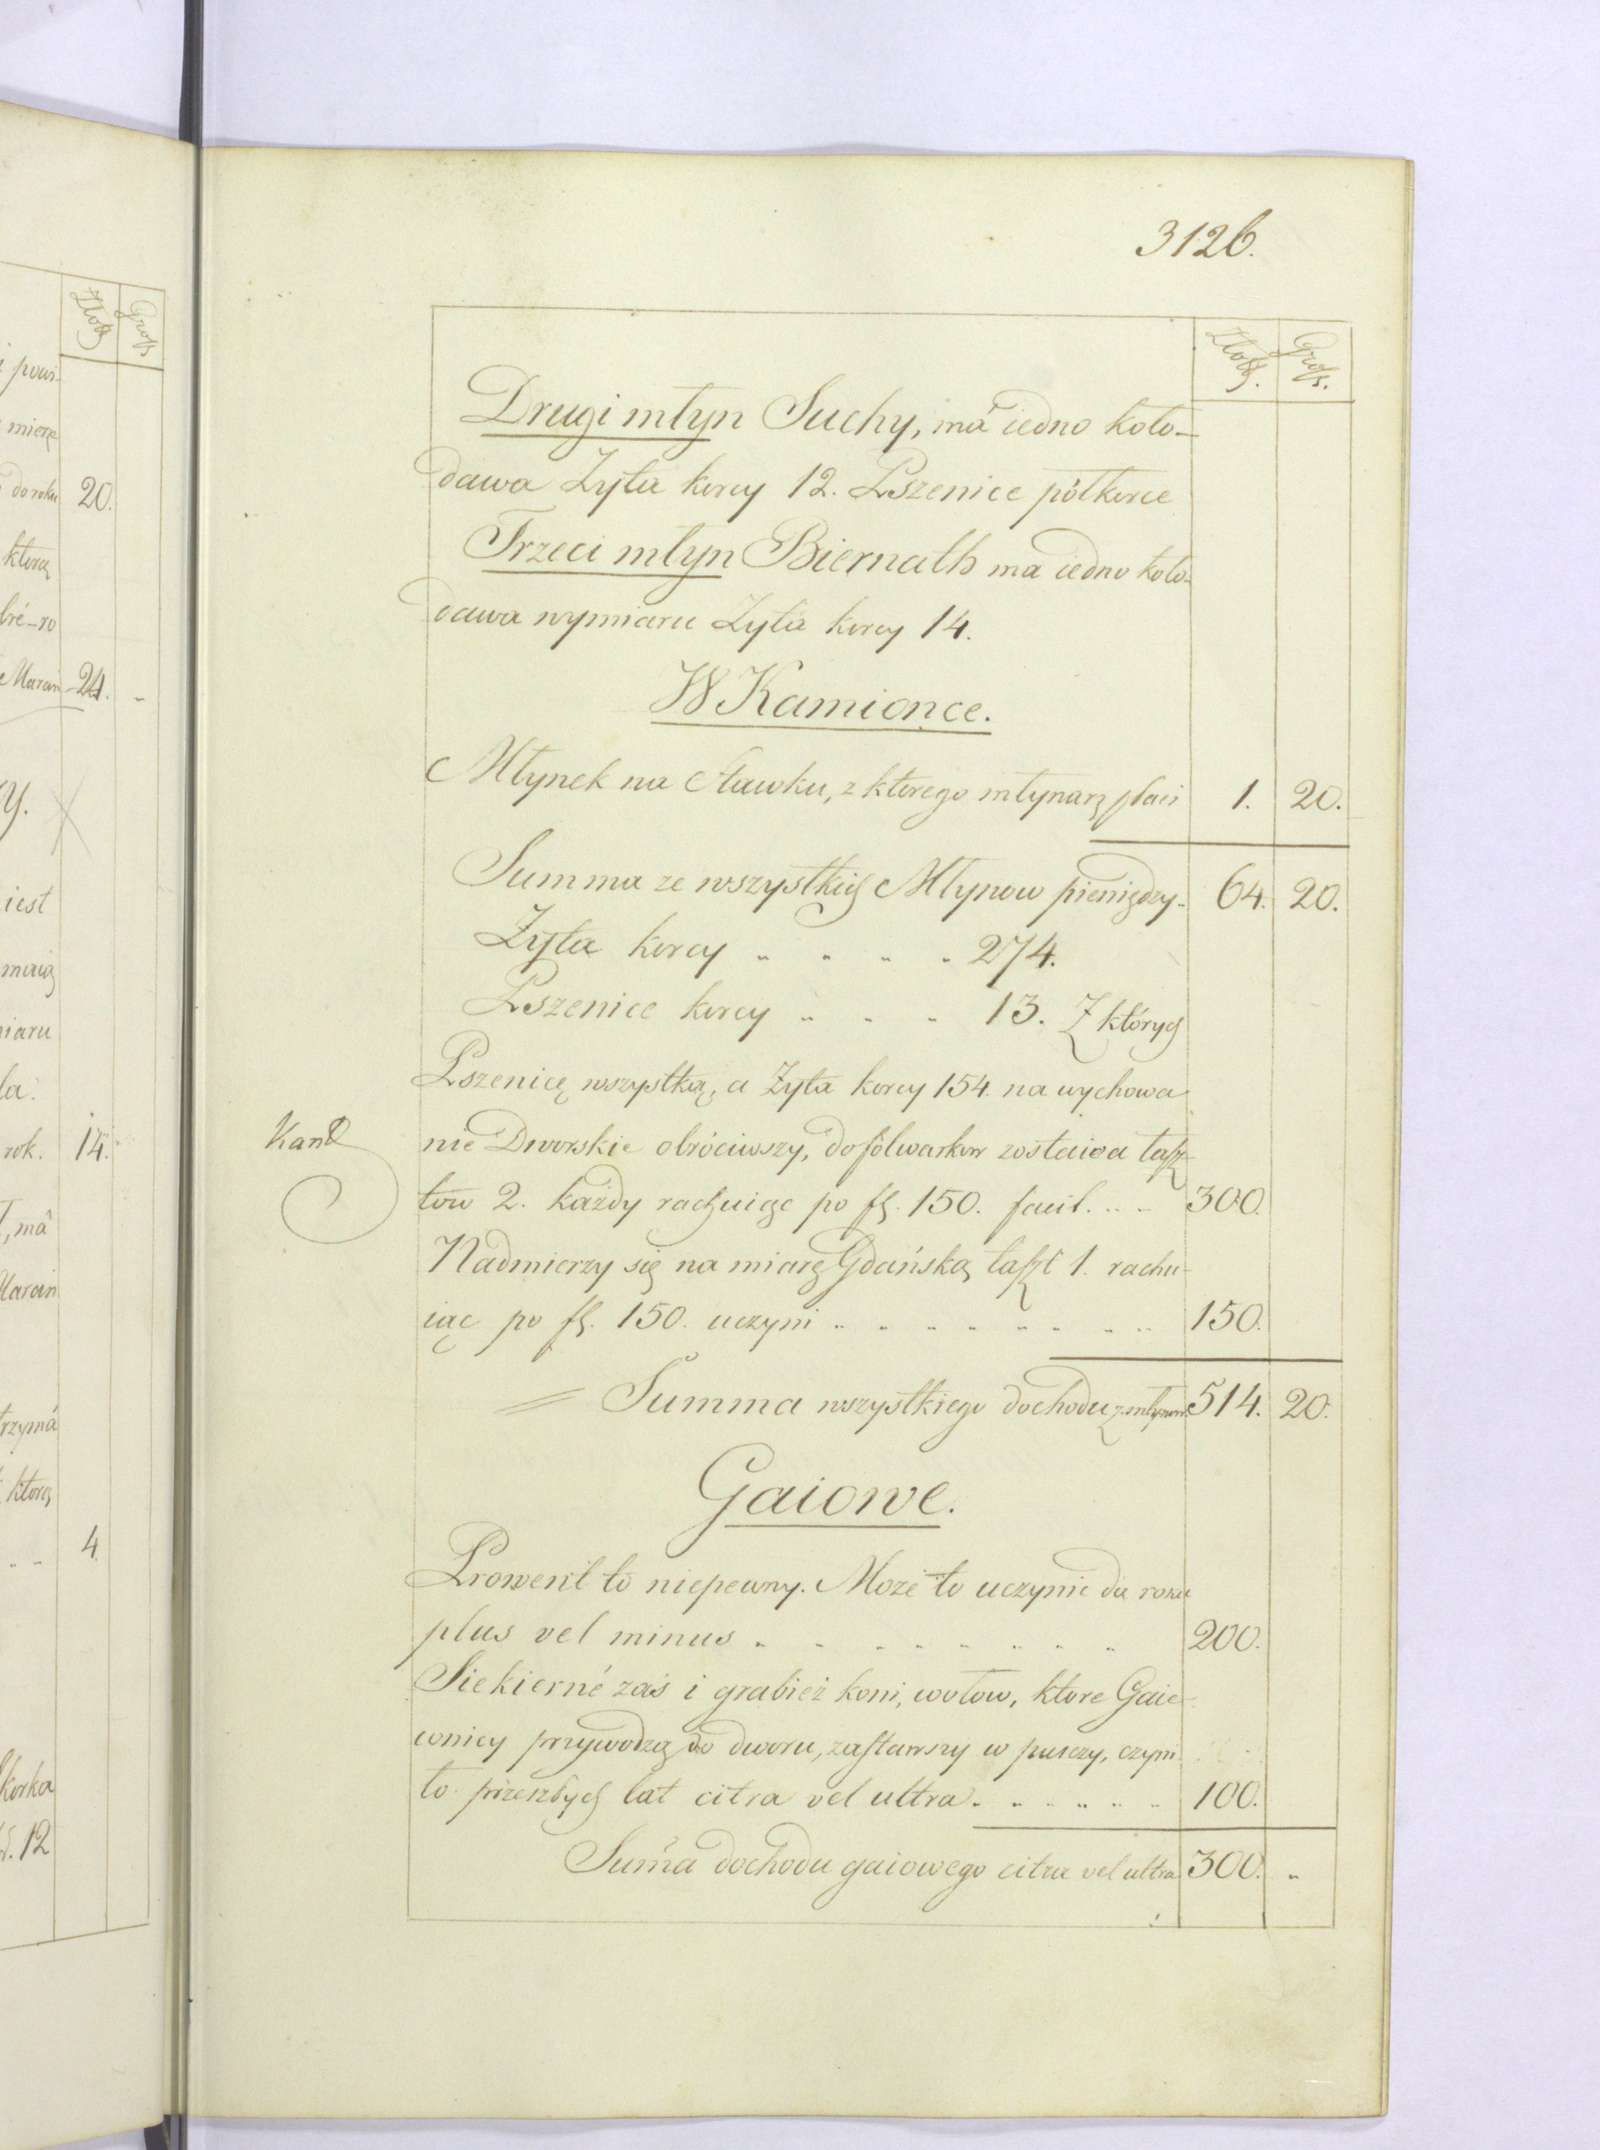 3126.
Złote. Grosz.
Drugi młyn Suchy, má iedno koło–
dawa Zyta korcy 12. Pszenice półkorce
Trzeci młyn Biernath ma iedno koło–
dawa wymiaru Zyta korcy 14.
W Kamionce.
Młynek na Stawku, z ktorego młynarz płaci 1. 20.
Summa ze wszystkich Młynow pieniędzy. 64. 20.
Zyta korcy . . . . 274.
Pszenice korcy . . . 13. Z których
Pszenicę wszystką, a Zyta korcy 154 na wychowa
nie Dworskie obróciwszy, do fólwarkow zostaiea łaszt–
tow 2. każdy rachuiąc po fl. 150. facit. . . . 300.
Nadmierzy się na miarę Gdańską łaszt 1. rachu–
iąc po fl. 150. uczyni . . . . . . . . 150.
= Summa wszystkiego dochodu z młynow 514. 20.
Gaiowe.
Prowent to niepewny. Może to uczynić do roku
plus vel minus . . . . . . . . 200.
Siekierné zaś i grabież koni, wołow, ktore Gaie–
wnicy przywodzą do dworu, zastawszy w pusczy, czyni
to przeszłych lat citra vel ultra . . . . . . 100.
Suma dochodu gaiowego citra vel ultra 300. "
Złote Grosz
powi–
mierzę
do roku 20.
ktorą
24.
y.
iest
maią
miaru
rok. 14.
, má
trzymá
ktorą
4
12